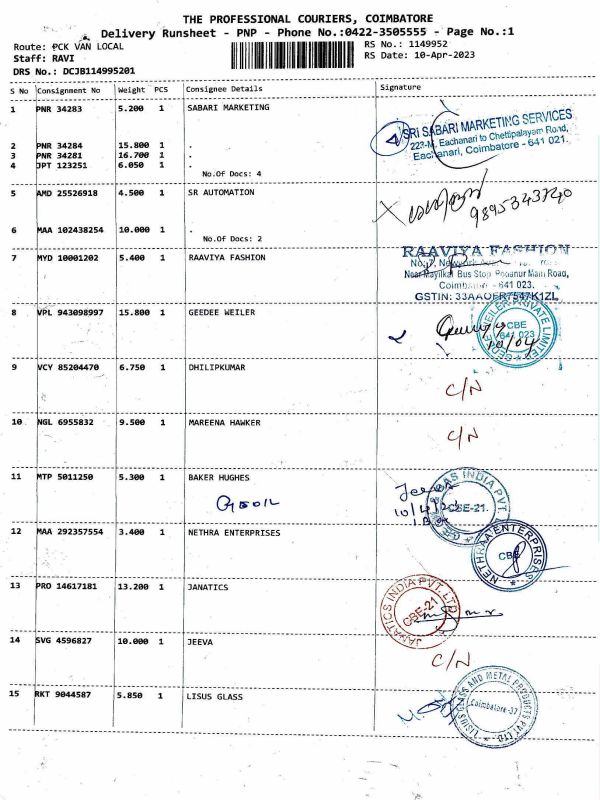 THE PROFESSIONAL COURIERS, COIMBATORE
Delivery Runsheet - PNP - Phone No.:0422-3505555 - Page No.:1
Route: PCK VAN LOCAL
RS No.: 1149952
Staff: RAVI
RS Date: 10-Apr-2023
DRS No.: DCJB114995201
S No Consignment No Weight PCS Consignee Details Signature
1 PNR 34283 5.200 1 SABARI MARKETING
SRI SABARI MARKETING SERVICES
223-M, Eachanari to Chettipalayam Road,
Eachanari, Coimbatore - 641 021.
2 PNR 34284 15.800 1 .
3 PNR 34281 16.700 1 .
4 JPT 123251 6.050 1 .
No.Of Docs: 4
5 AMD 25526918 4.500 1 SR AUTOMATION
9895343740
6 MAA 102438254 10.000 1 .
No.Of Docs: 2
7 MYD 10001202 5.400 1 RAAVIYA FASHION
RAAVIYA FASHION
Near Mayilkal Bus Stop Podanur Main Road,
Coimbatore - 641 023.
GSTIN: 33AAOFR7547K1ZL
8 VPL 943098997 15.800 1 GEEDEE WEILER
GEDEE WEILER PRIVATE LIMITED
CBE
641 023
10/04
9 VCY 85204470 6.750 1 DHILIPKUMAR
C/N
10 NGL 6955832 9.500 1 MAREENA HAWKER
C/N
11 MTP 5011250 5.300 1 BAKER HUGHES
GAS INDIA PVT.
CBE-21.
12 MAA 292357554 3.400 1 NETHRA ENTERPRISES
NETHRAA ENTERPRISES
CBE
13 PRO 14617181 13.200 1 JANATICS
JANATICS INDIA PVT. LTD
CBE-21
14 SVG 4596827 10.000 1 JEEVA
C/N
15 RKT 9044587 5.850 1 LISUS GLASS
LISUS GLASS AND METAL PRODUCTS PVT LTD.
Coimbatore-37